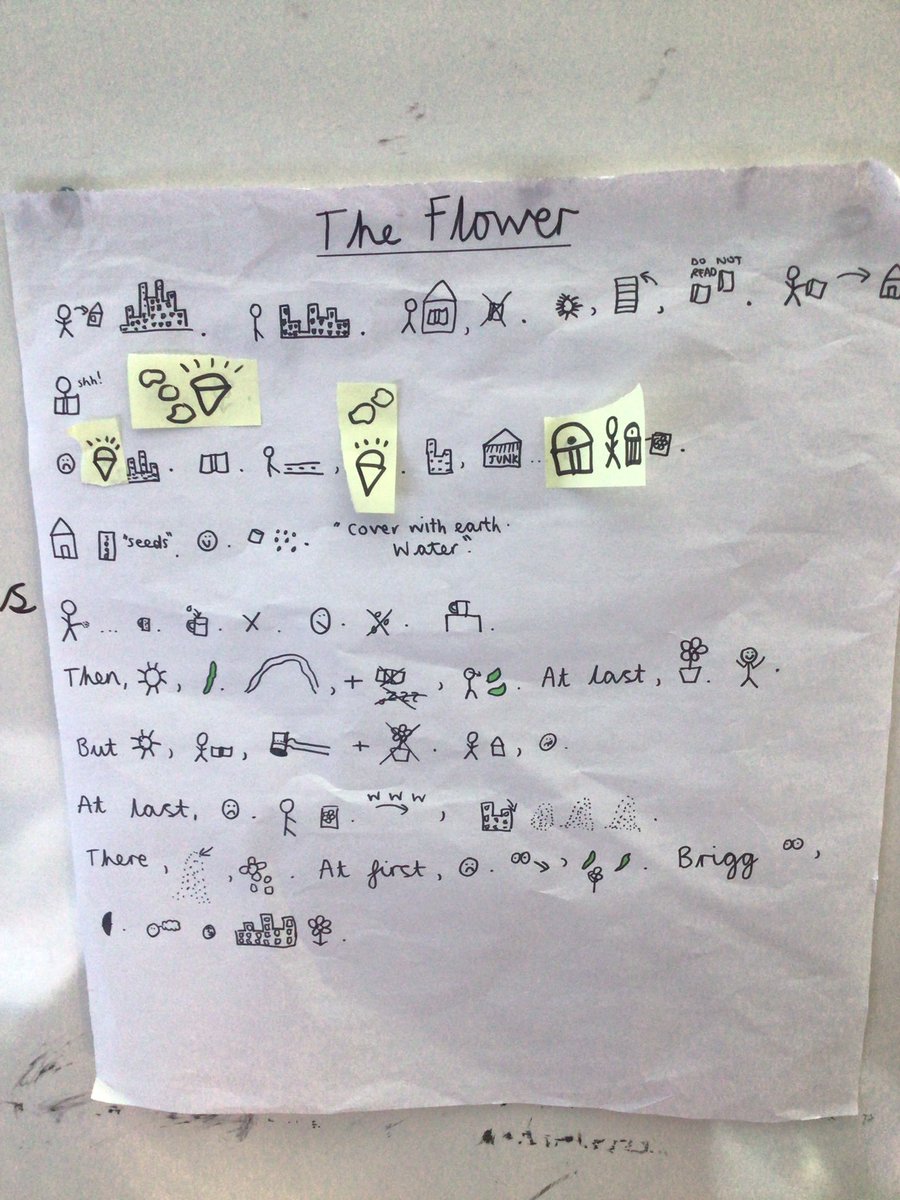 The Flower
DO NOT
READ
shh!
JUNK
"seeds".
"cover with earth.
Water".
Then, , . , + zzz , . At last, . .
But , , + . , .
At last, . . www , .
There, , . At first, . , . Brigg ,